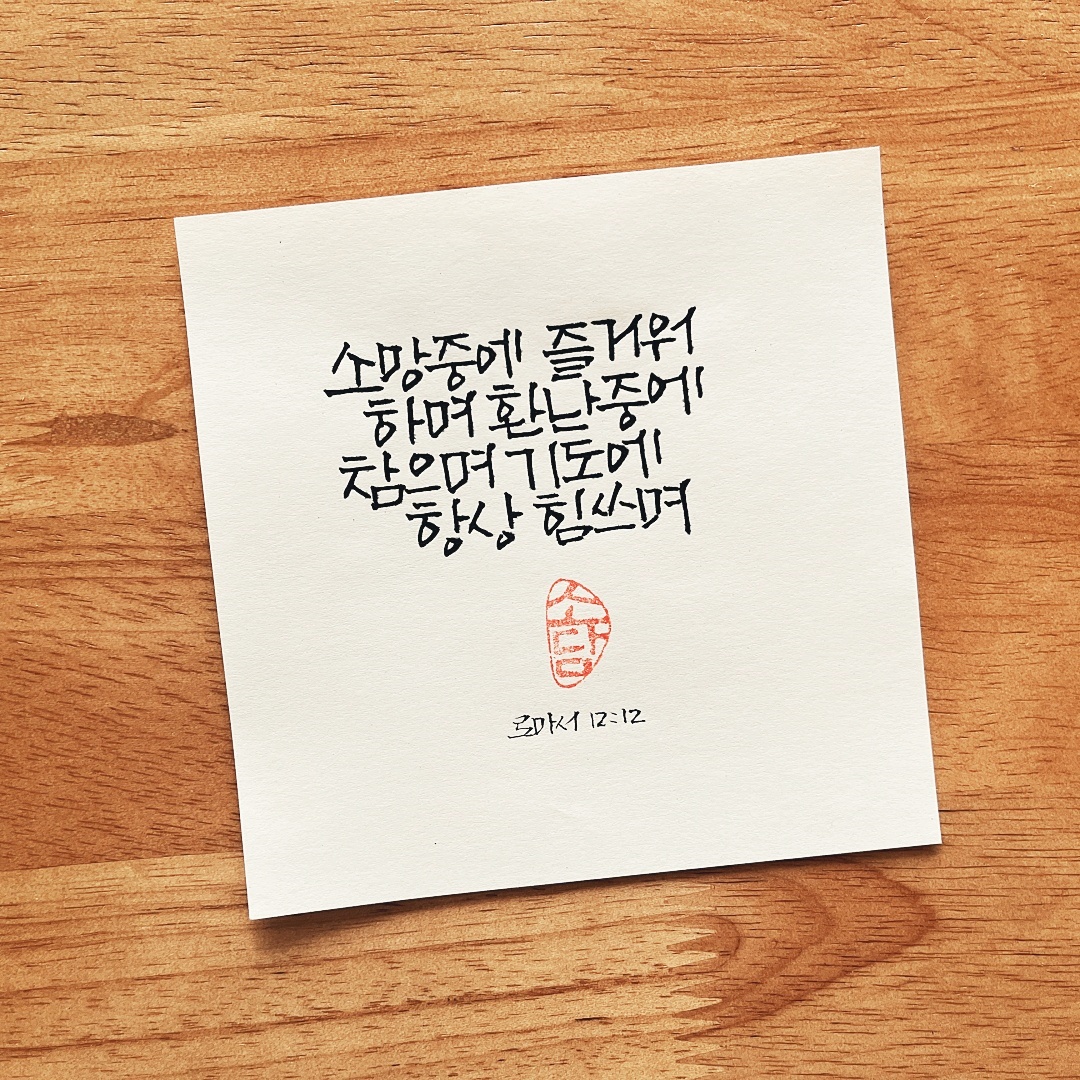 소망중에 즐거워
하며 환난중에
참으며 기도에
항상 힘쓰며
소망
로마서 12:12